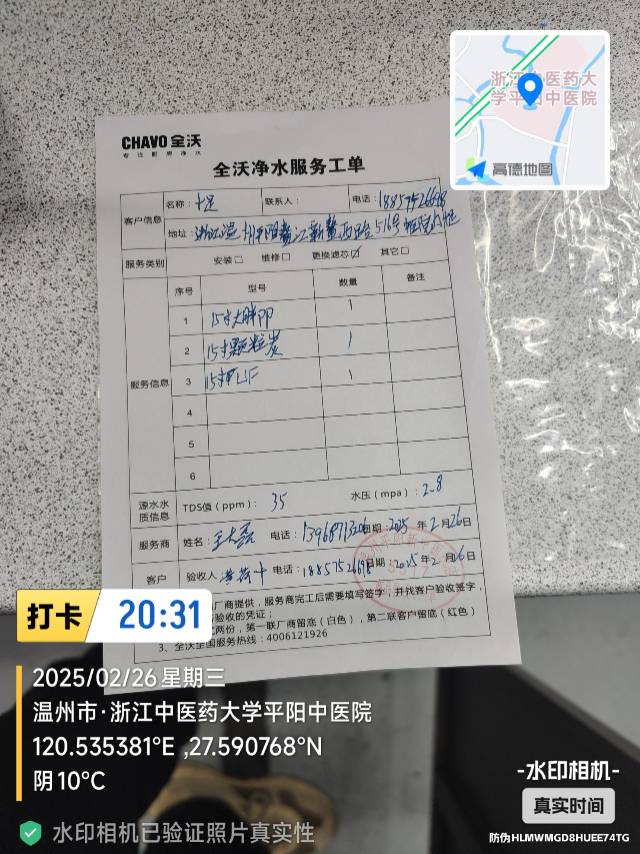 浙江中医药大
学平阳中医院
高德地图
CHAVO全沃
专注厨房净水
全沃净水服务工单
客户信息 名称： 联系人： 电话：18857526698
地址：
服务类别 安装□ 维修□ 更换滤芯☑ 其它□
服务信息 序号 型号 数量 备注
1 15寸大胖PP 1
2 15寸颗粒炭 1
3 15寸 1
4
5
6
源水水质信息 TDS值（ppm）： 35 水压（mpa）：2.8
服务商 姓名：王大磊 电话： 日期 2025 年 2 月 26 日
客户 验收人 电话：18857526698 日期 2025 年 2 月 26 日
厂商提供，服务商完工后需要填写签字，并找客户验收签字，
验收的凭证；
式两份，第一联厂商留底（白色），第二联客户留底（红色）
3、全沃全国服务热线：4006121926
打卡 20:31
2025/02/26 星期三
温州市·浙江中医药大学平阳中医院
120.535381°E ,27.590768°N
阴 10°C
水印相机已验证照片真实性
-水印相机-
真实时间
防伪HLMWMGD8HUEE74TG